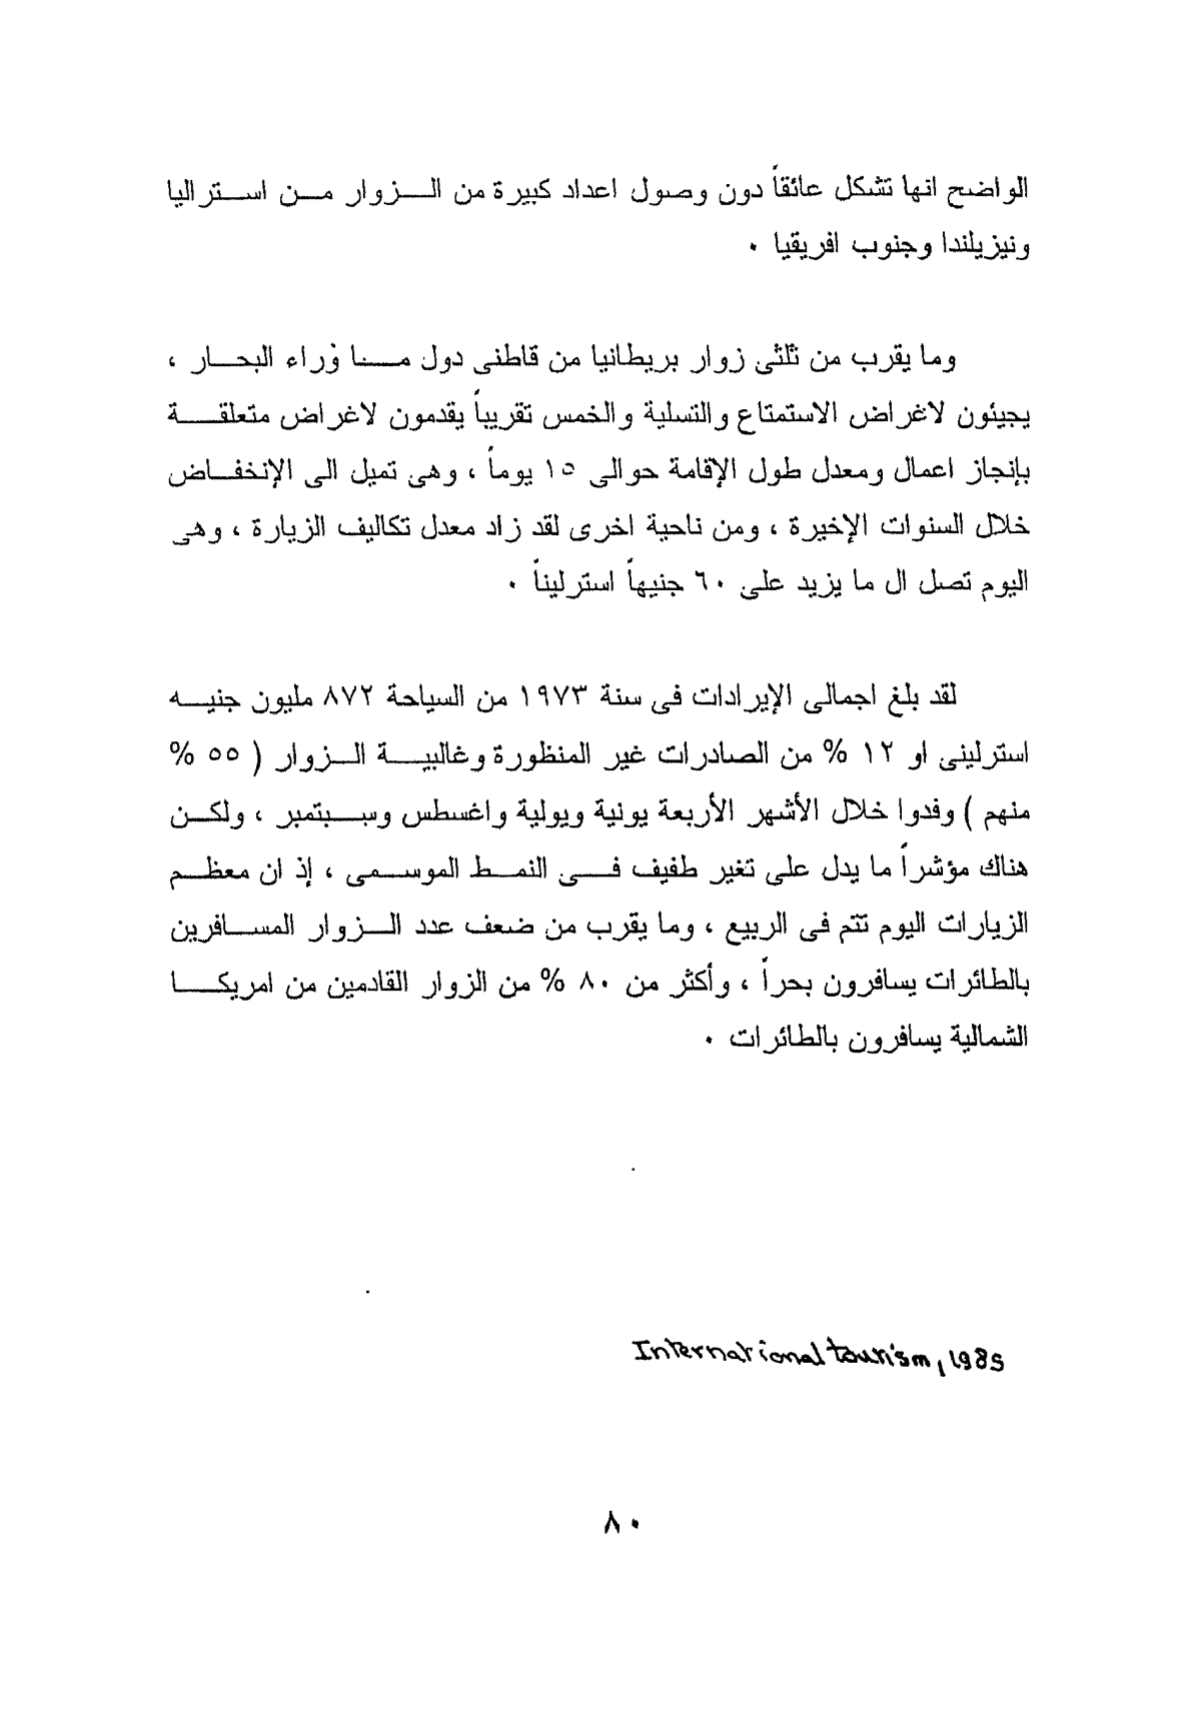 الواضح انها تشكل عائقاً دون وصول اعداد كبيرة من الـــزوار مــن اســتراليا
ونيزيلندا وجنوب افريقيا ٠
وما يقرب من ثلثى زوار بريطانيا من قاطنى دول مـــا وراء البحــار ،
يجيئون لاغراض الاستمتاع والتسلية والخمس تقريباً يقدمون لاغراض متعلقـــة
بإنجاز اعمال ومعدل طول الإقامة حوالى ١٥ يوماً ، وهى تميل الى الإنخفــاض
خلال السنوات الإخيرة ، ومن ناحية اخرى لقد زاد معدل تكاليف الزيارة ، وهى
اليوم تصل ال ما يزيد على ٦٠ جنيهاً استرليناً ٠
لقد بلغ اجمالى الإيرادات فى سنة ١٩٧٣ من السياحة ٨٧٢ مليون جنيــه
استرلينى او ١٢ % من الصادرات غير المنظورة وغالبيـــة الـــزوار ( ٥٥ %
منهم ) وفدوا خلال الأشهر الأربعة يونية ويولية واغسطس وسـبتمبر ، ولكــن
هناك مؤشراً ما يدل على تغير طفيف فـــى النمــط الموســمى ، إذ ان معظــم
الزيارات اليوم تتم فى الربيع ، وما يقرب من ضعف عدد الـــزوار المســافرين
بالطائرات يسافرون بحراً ، وأكثر من ٨٠ % من الزوار القادمين من امريكـــا
الشمالية يسافرون بالطائرات ٠
International tourism, 1985
٨٠